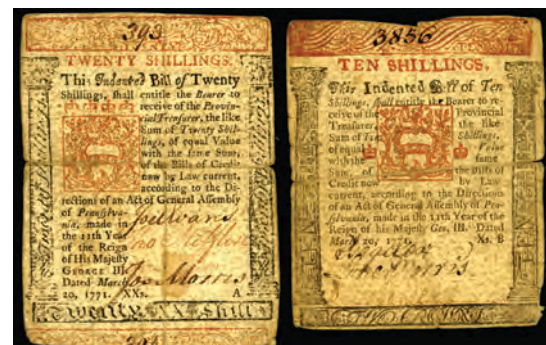 393
TWENTY SHILLINGS.
This Indented Bill of Twenty
Shillings, shall entitle the Bearer to
receive of the Provin-
cial Treasurer, the like
Sum of Twenty Shil-
lings, of equal Value
with the same Sum,
of the Bills of Credit
now by Law current,
according to the Di-
rections of an Act of General Assembly
of Pennsylva-
nia, made in
the 11th Year
of the Reign
of His Majesty
GEORGE III.
Dated March
20, 1771. XXs. A
Morris
Twenty XX Shill
3856
TEN SHILLINGS.
This Indented Bill of Ten
Shillings, shall entitle the Bearer to re-
ceive of the Provincial
Treasurer, the like
Sum of Ten Shillings,
of equal Value
with the same
Sum, of the Bills of
Credit now by Law
current, according to the Directions
of an Act of General Assembly of Penn-
sylvania, made in the 11th Year of the
Reign of his Majesty Geo. III. Dated
March 20, 1771. Xs. B
Morris